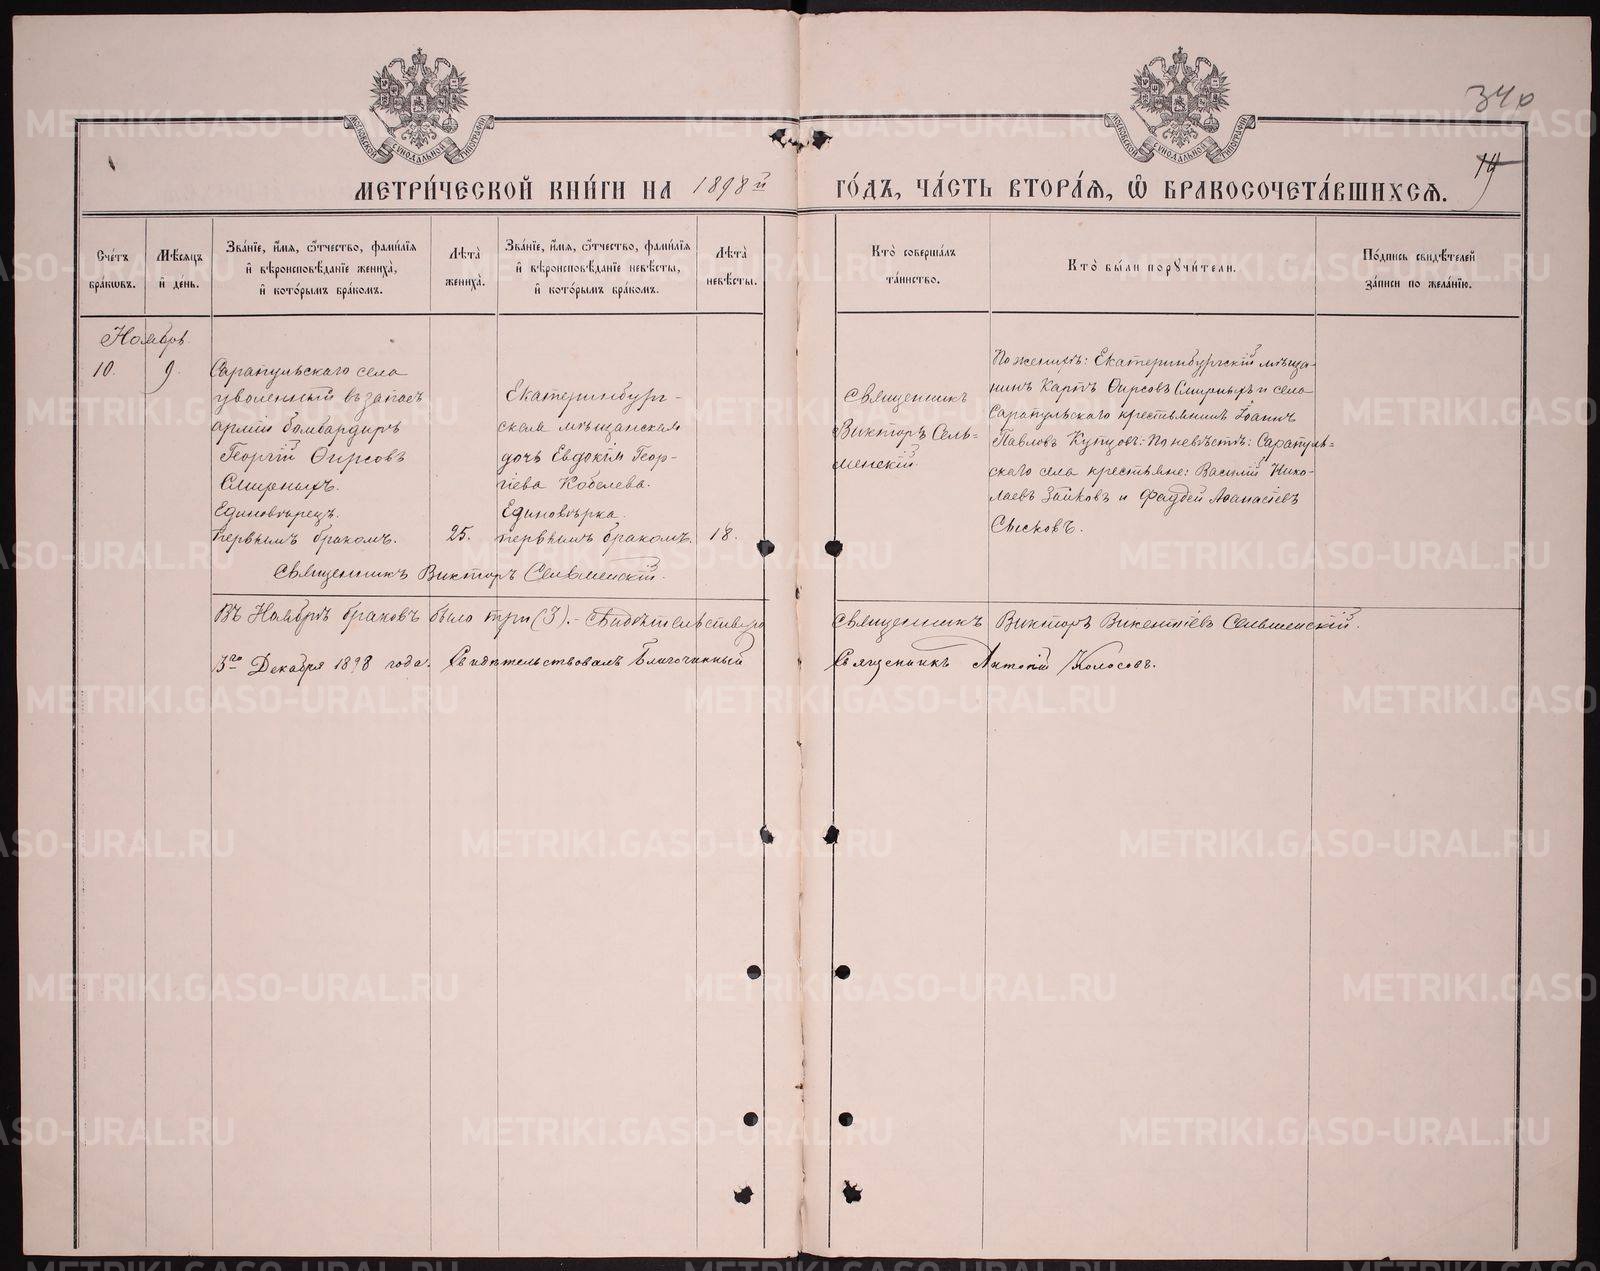 340
19
МОСКОВСКОЙ СѴНОДАЛЬНОЙ ТИПОГРАФІИ
МОСКОВСКОЙ СѴНОДАЛЬНОЙ ТИПОГРАФІИ
МЕТРИ́ЧЕСКОЙ КНИ́ГИ НА 1898й ГО́ДЪ, ЧА́СТЬ ВТОРА́Я, Ѽ БРАКОСОЧЕТА́ВШИХСѦ.
Сче́тъ бра́кѡвъ.
Мѣ́сяцъ и҆ де́нь.
Зва́нїе, и҆́мя, ѻ҆́тчество, фами́лїя и҆ вѣроисповѣ́данїе жениха̀, и҆ кото́рымъ бра́комъ.
Лѣта̀ жениха̀.
Зва́нїе, и҆́мя, ѻ҆́тчество, фами́лїя и҆ вѣроисповѣ́данїе невѣ́сты, и҆ кото́рымъ бра́комъ.
Лѣта̀ невѣ́сты.
Кто̀ соверша́лъ та́инство.
Кто̀ бы́ли порꙋчи́тели.
По́дпись свидѣ́телей за́писи по жела́нїю.
Ноябрь
10. 9.
Сарапульскаго села
уволенный въ запасъ
арміи бомбардиръ
Георгій Ѳирсовъ
Смирныхъ.
Единовѣрецъ.
первымъ бракомъ.
25.
Екатеринбург-
ская мѣщанская
дочь Евдокія Геор-
гіева Кобелева.
Единовѣрка.
первымъ бракомъ.
18.
Священникъ
Викторъ Сель-
менскій
По женихѣ: Екатеринбургскій мѣща-
нинъ Карпъ Ѳирсовъ Смирныхъ и села
Сарапульскаго крестьянинъ Іоаннъ
Павловъ Купцовъ: По невѣстѣ: Сарапуль-
скаго села крестьяне: Василій Нико-
лаевъ Зайковъ и Фаддей Аѳанасіевъ
Сысковъ.
Священникъ Викторъ Сельменскій.
Въ Ноябрѣ браковъ было три (3). – Свидѣтельствую Священникъ Викторъ Викентіевъ Сельменскій.
3го Декабря 1898 года. Свидѣтельствовалъ Благочинный Священникъ Антоній Колосовъ.
METRIKI.GASO-URAL.RU